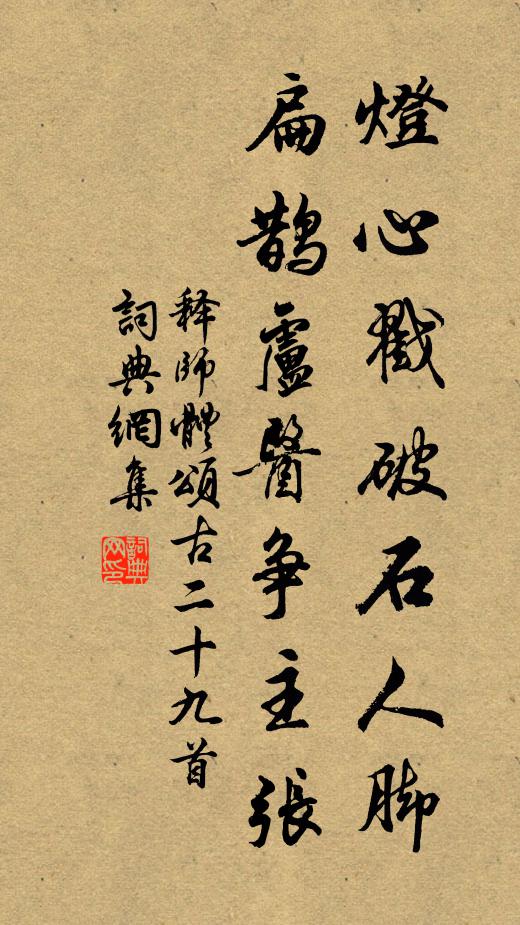 燈心戳破石人脚
扁鹊盧醫争主張
释師體頌古二十九首
詞典網集
詞典网印